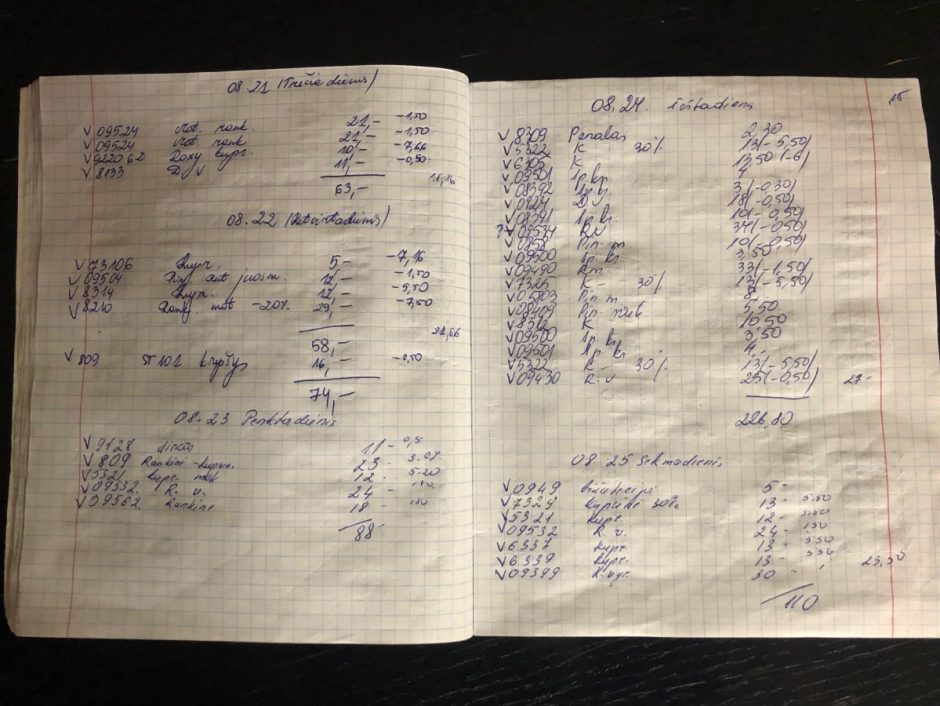 08.21 (Trečiadienis)
v 09524 Mot. rank. 21,- -1,50
v 09524 Mot. rank 21,- -1,50
v 922062 Doxy kupr. 10,- -7,66
v 8133 D v 11,- -0,50
11,16
63,-
08.22 (Ketvirtadienis)
v 73106 kupr. 5- -7,16
v 09504 juosm. 12,- -1,50
v 8314 kupr. 12,- -5,50
v 8210 Rank mot -20% 29,- -7,50
21,66
58,-
v 809 ST 101 krepšys 16,- -0,50
74,-
08.23 Penktadienis
v 9128 diržas 11- 0,5
v 809 Rankinė-kupr. 23-
v 5321 kupr. 12- 5.20
v 09532. R. v. 24-
v 09502 Rankinė 18-
88
15
08.24. šeštadienis
v 8309 Penalas 2,30
v 5322 K 30% 13(-5,50)
v 6305 K 13,50 (-6)
v 09501 Sp. kr. 4,
v 08392 Sp. kr. 3(-0,30)
v 0924 D v 18(-0,50)
v 08391 Sp. kr. 10(-0,50)
v 09534 R v 34(-0,50)
v 0858 Pin. m 10(-0,50)
v 09500 Sp. kr 3,50
v 09490 Rm 33(-1,50)
v 7325 K- 30% 13(-5,50)
v 05903 Pin. m 8,-
v 08409 Pin. 5,50
v 8312 K 10,50
v 09500 Sp. kr. 3,50
v 09501 Sp. kr 4,-
v 5322 K- 30% 13(-5,50)
v 09430 R. v 25(-0,50) 27-
226,80
08.25 Sekmadienis
v 0949 bižuterija 5-
v 7324 kuprinė 30% 13- 5.50
v 5321 kupr. 12- 5.50
v 09532 R. v 24- 1.50
v 6337 kupr. 13- 5.50
v 6339 kupr. 13- 5.50
v 09399 R. vyr. 30-
23,50
110